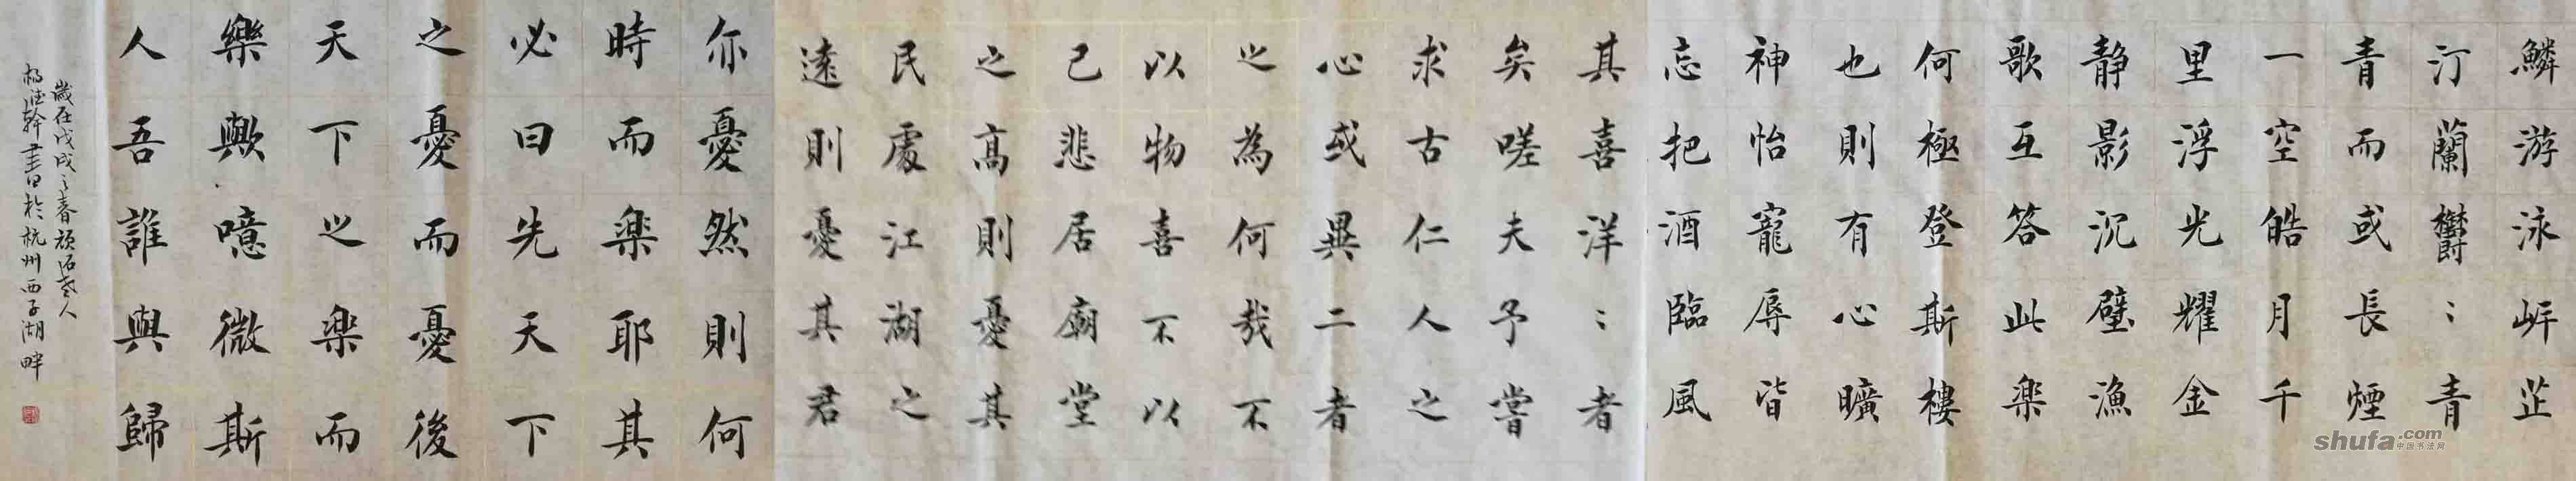 鱗游泳岍芷
汀蘭欝〻青
青而或長煙
一空皓月千
里浮光耀金
静影沉璧漁
歌互答此楽
何極登斯樓
也則有心曠
神怡寵辱皆
忘把酒臨風
其喜洋〻者
矣嗟夫予嘗
求古仁人之
心或異二者
之為何哉不
以物喜不以
己悲居廟堂
之高則憂其
民處江湖之
遠則憂其君
亦憂然則何
時而楽耶其
必曰先天下
之憂而憂後
天下之楽而
樂歟噫微斯
人吾誰與歸
歲在戊戌之春頑石老人
幹書於杭州西子湖畔
shufa.com
中国书法网